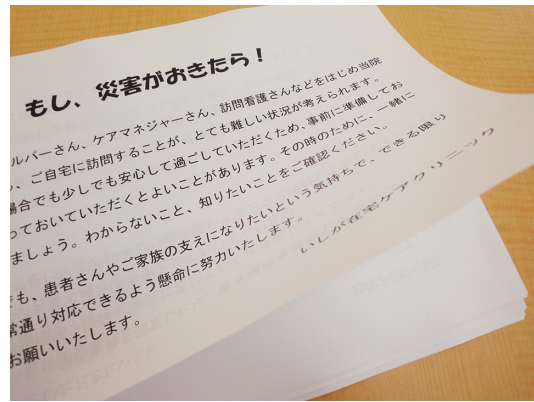 もし、災害がおきたら！
ルパーさん、ケアマネジャーさん、訪問看護さんなどをはじめ当院
、ご自宅に訪問することが、とても難しい状況が考えられます。
場合でも少しでも安心して過ごしていただくため、事前に準備してお
っておいていただくとよいことがあります。その時のために、一緒に
ましょう。わからないこと、知りたいことをご確認ください。
でも、患者さんやご家族の支えになりたいという気持ちで、できる限り
常通り対応できるよう懸命に努力いたします。
お願いいたします。
いしが在宅ケアクリニック